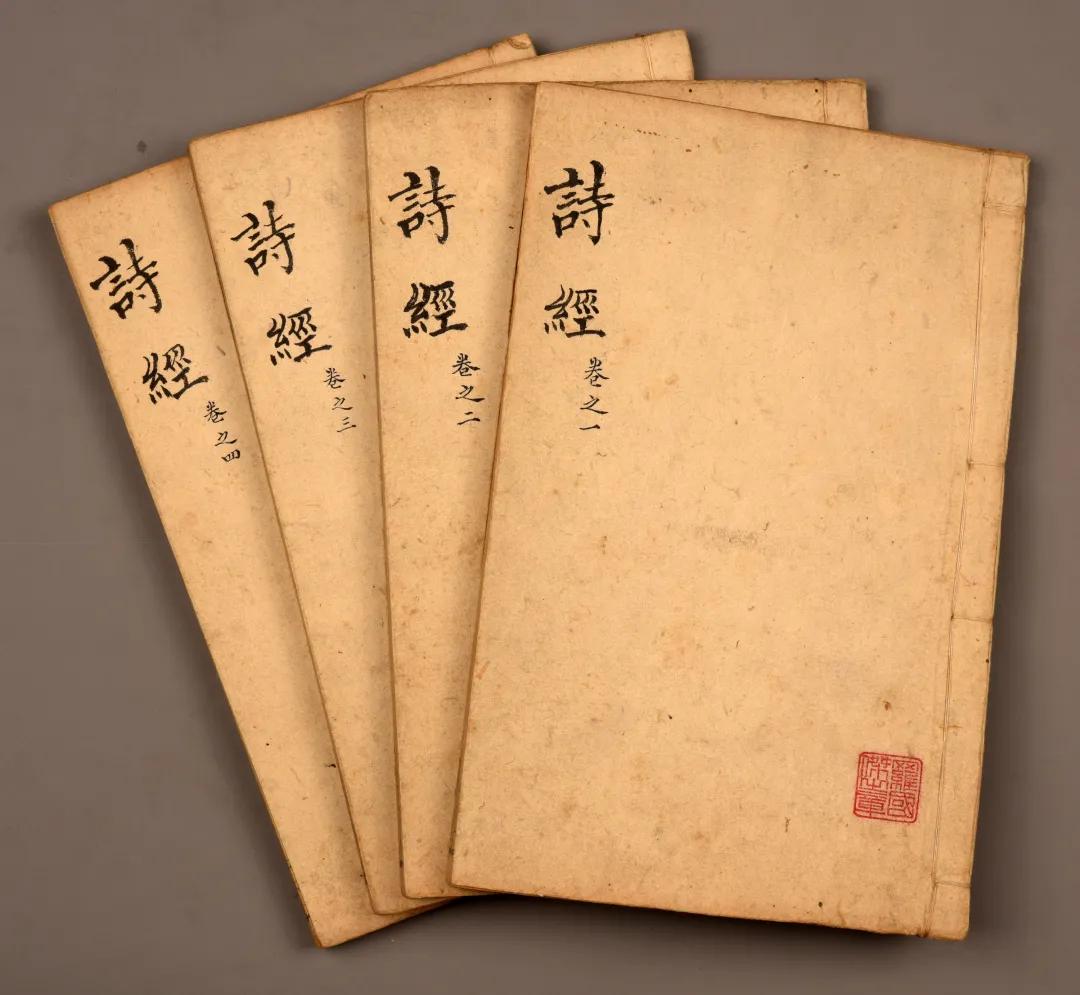 詩經
卷之一
詩經
卷之二
詩經
卷之三
詩經
卷之四
羅國
傑章